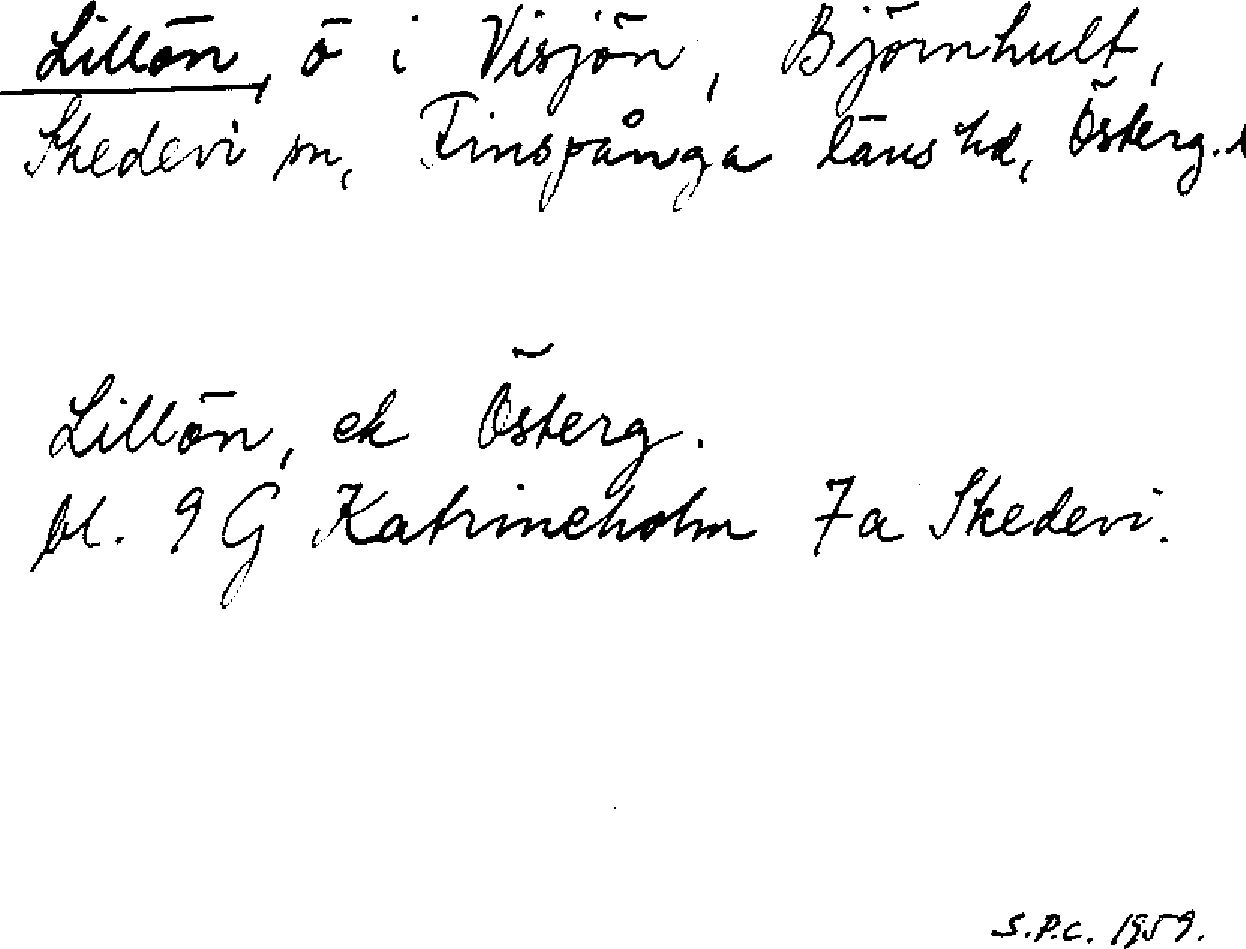 Lillön, ö i Visjön, Björnhult,
Skedevi sn, Finspånga läns hd, Österg. l
Lillön, ek Österg.
bl. 9 G Katrineholm 7a Skedevi.
S.P.C. 1959.